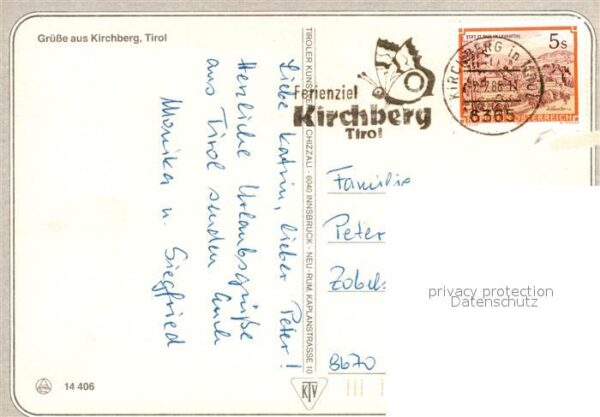 Grüße aus Kirchberg, Tirol
Liebe Katrin, lieber Peter!
Herzliche Urlaubsgrüße
aus Tirol senden Euch
Monika u. Siegfried
TIROLER KUNSTVERLAG CHIZZALI · 6040 INNSBRUCK - NEU-RUM, KAPLANSTRASSE 10
Ferienziel
Kirchberg
Tirol
KIRCHBERG in TIROL
6365
STIFT ST. PAUL IM LAVANTTAL
5s
ÖSTERREICH
Familie
Peter
8670
privacy protection
Datenschutz
14 406
KTV